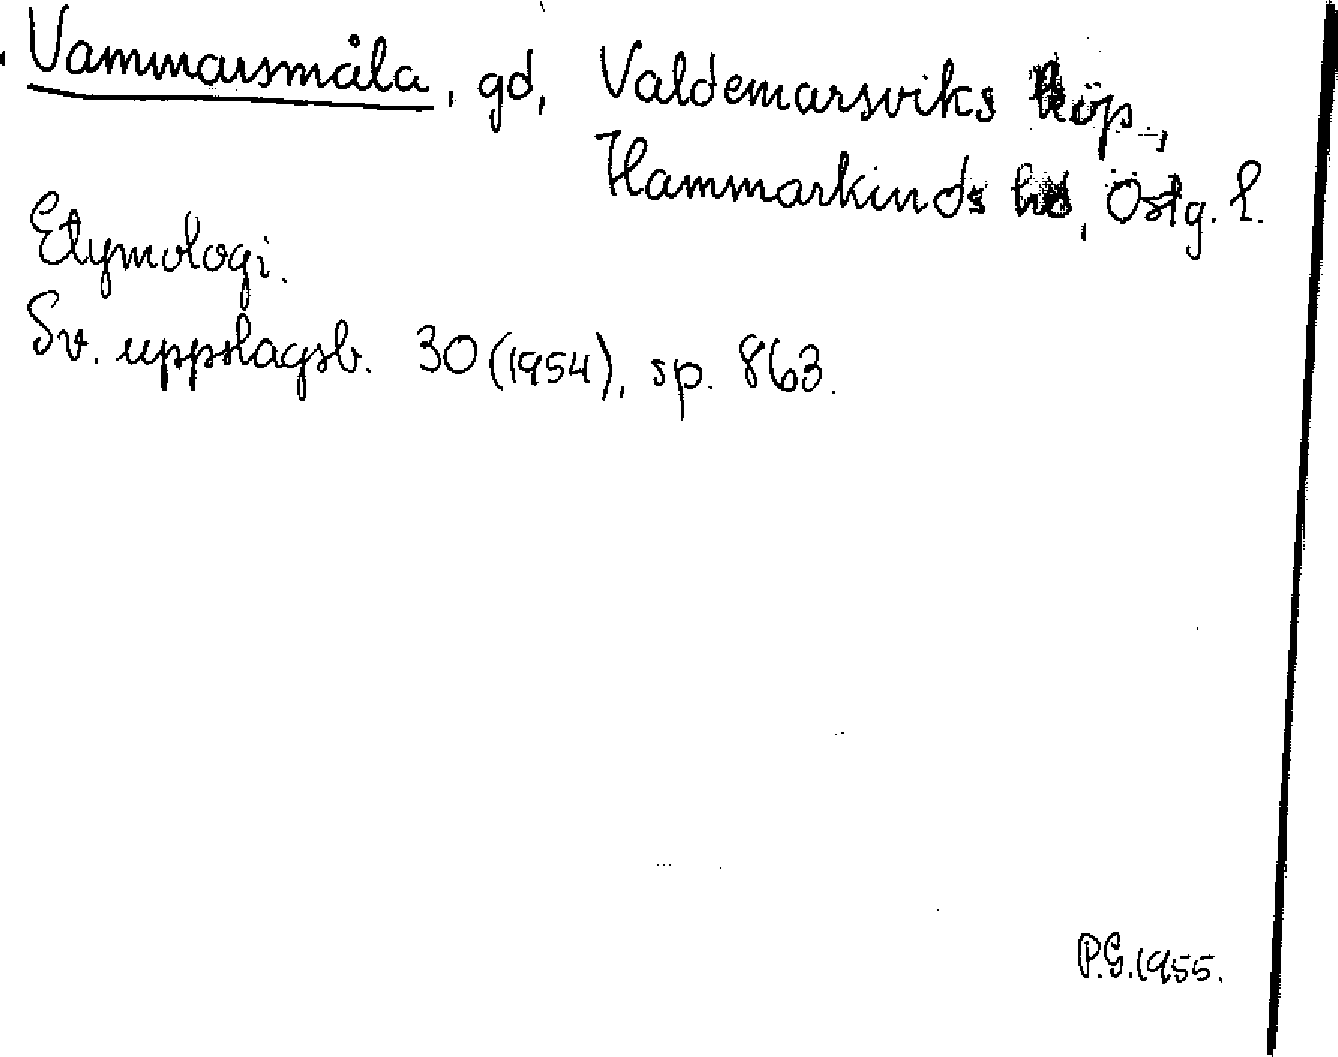 Vammarsmåla, gd, Valdemarsviks köp.,
Hammarkinds hd, Östg. l.
Etymologi.
Sv. uppslagsb. 30 (1954), sp. 863.
P.G. 1955.